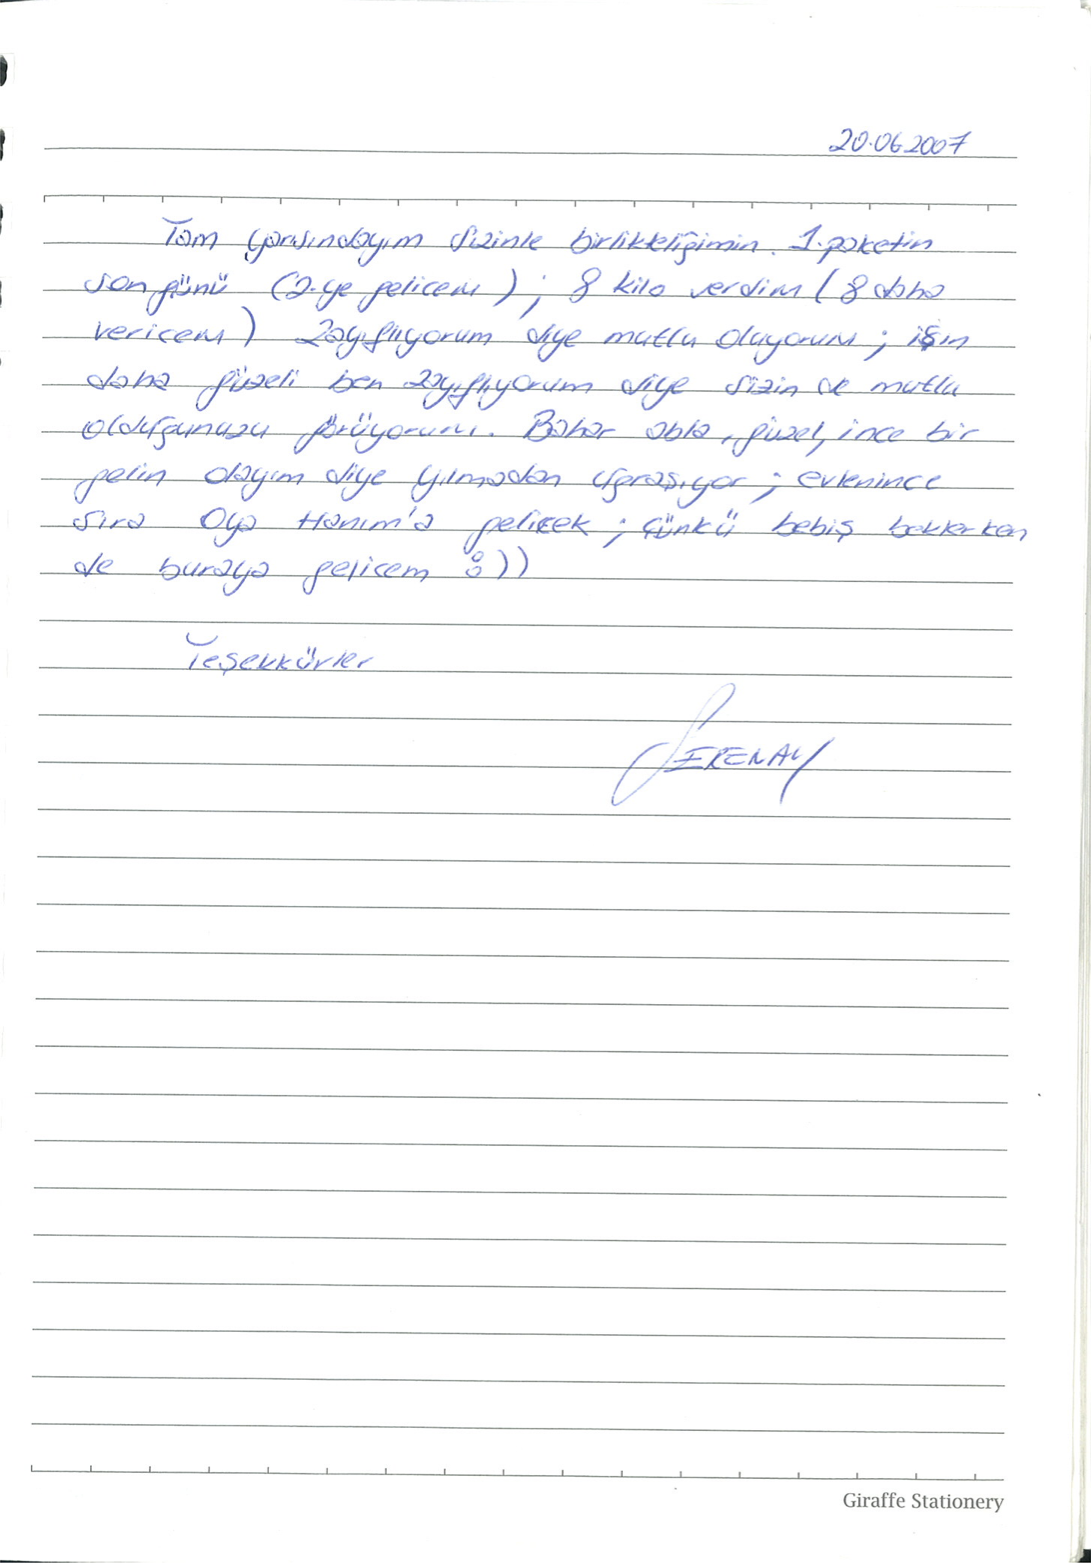 20.06.2007
Tam yarısındayım sizinle birlikteliğimin. 1.paketin
son günü (2.ye gelicem); 8 kilo verdim (8 daha
vericem) Zayıflıyorum diye mutlu oluyorum; işin
daha güzeli ben zayıflıyorum diye sizin de mutlu
olduğunuzu görüyorum. Bahar abla, güzel, ince bir
gelin olayım diye yılmadan uğraşıyor; evlenince
sıra Oya Hanım'a gelicek; çünkü bebiş beklerken
de buraya gelicem :))
Teşekkürler
SERENAY
Giraffe Stationery